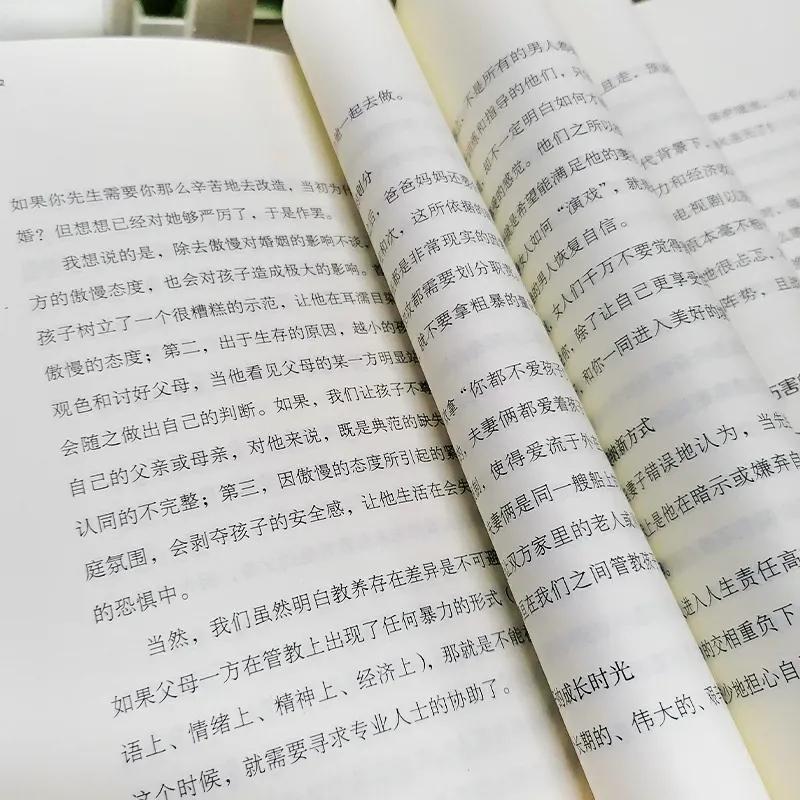 2
如果你先生需要你那么辛苦地去改造,当初为什
婚?但想想已经对她够严厉了,于是作罢。
我想说的是,除去傲慢对婚姻的影响不谈,
方的傲慢态度,也会对孩子造成极大的影响。
孩子树立了一个很糟糕的示范,让他在耳濡目染
傲慢的态度;第二,出于生存的原因,越小的孩
观色和讨好父母,当他看见父母的某一方明显
会随之做出自己的判断。如果,我们让孩子不
自己的父亲或母亲,对他来说,既是典范的缺失
认同的不完整;第三,因傲慢的态度所引起的
庭氛围,会剥夺孩子的安全感,让他生活在会失
的恐惧中。
当然,我们虽然明白教养存在差异是不可避
如果父母一方在管教上出现了任何暴力的形式(
语上、情绪上、精神上、经济上),那就是不能
这个时候,就需要寻求专业人士的协助了。
一起去做。
划分
后,爸爸妈妈还
和火,这所依据
是非常现实的
都需要划分职
就不要拿粗暴的
拿“你都不爱孩子
夫妻俩都爱着孩
使得爱流于外
妻俩是同一艘船上
双方家里的老人或
在我们之间管教孩
成长时光
长期的、伟大的、
不是所有的男人都
和指导的他们,
却不一定明白如何
的感觉。他们之所以
是希望能满足他的要
人如何“演戏”,就
男人恢复自信。
女人们千万不要觉得
你,除了让自己更享受
和你一同进入美好的
新方式
妻子错误地认为,当先
上是他在暗示或嫌弃自
进入人生责任高
的交相重负下,
地担心自
且走,
代背景下,
力和经济
电视剧以
真本毫不
他很忐忑,
阵势,且